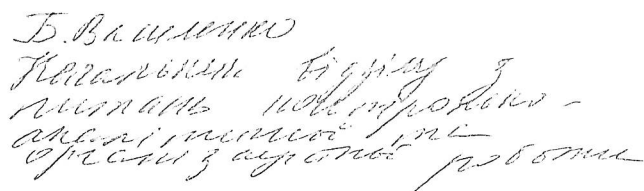 Б. Василенко
Начальник відділу з
питань контрольно-
аналітичної та
організаційної роботи